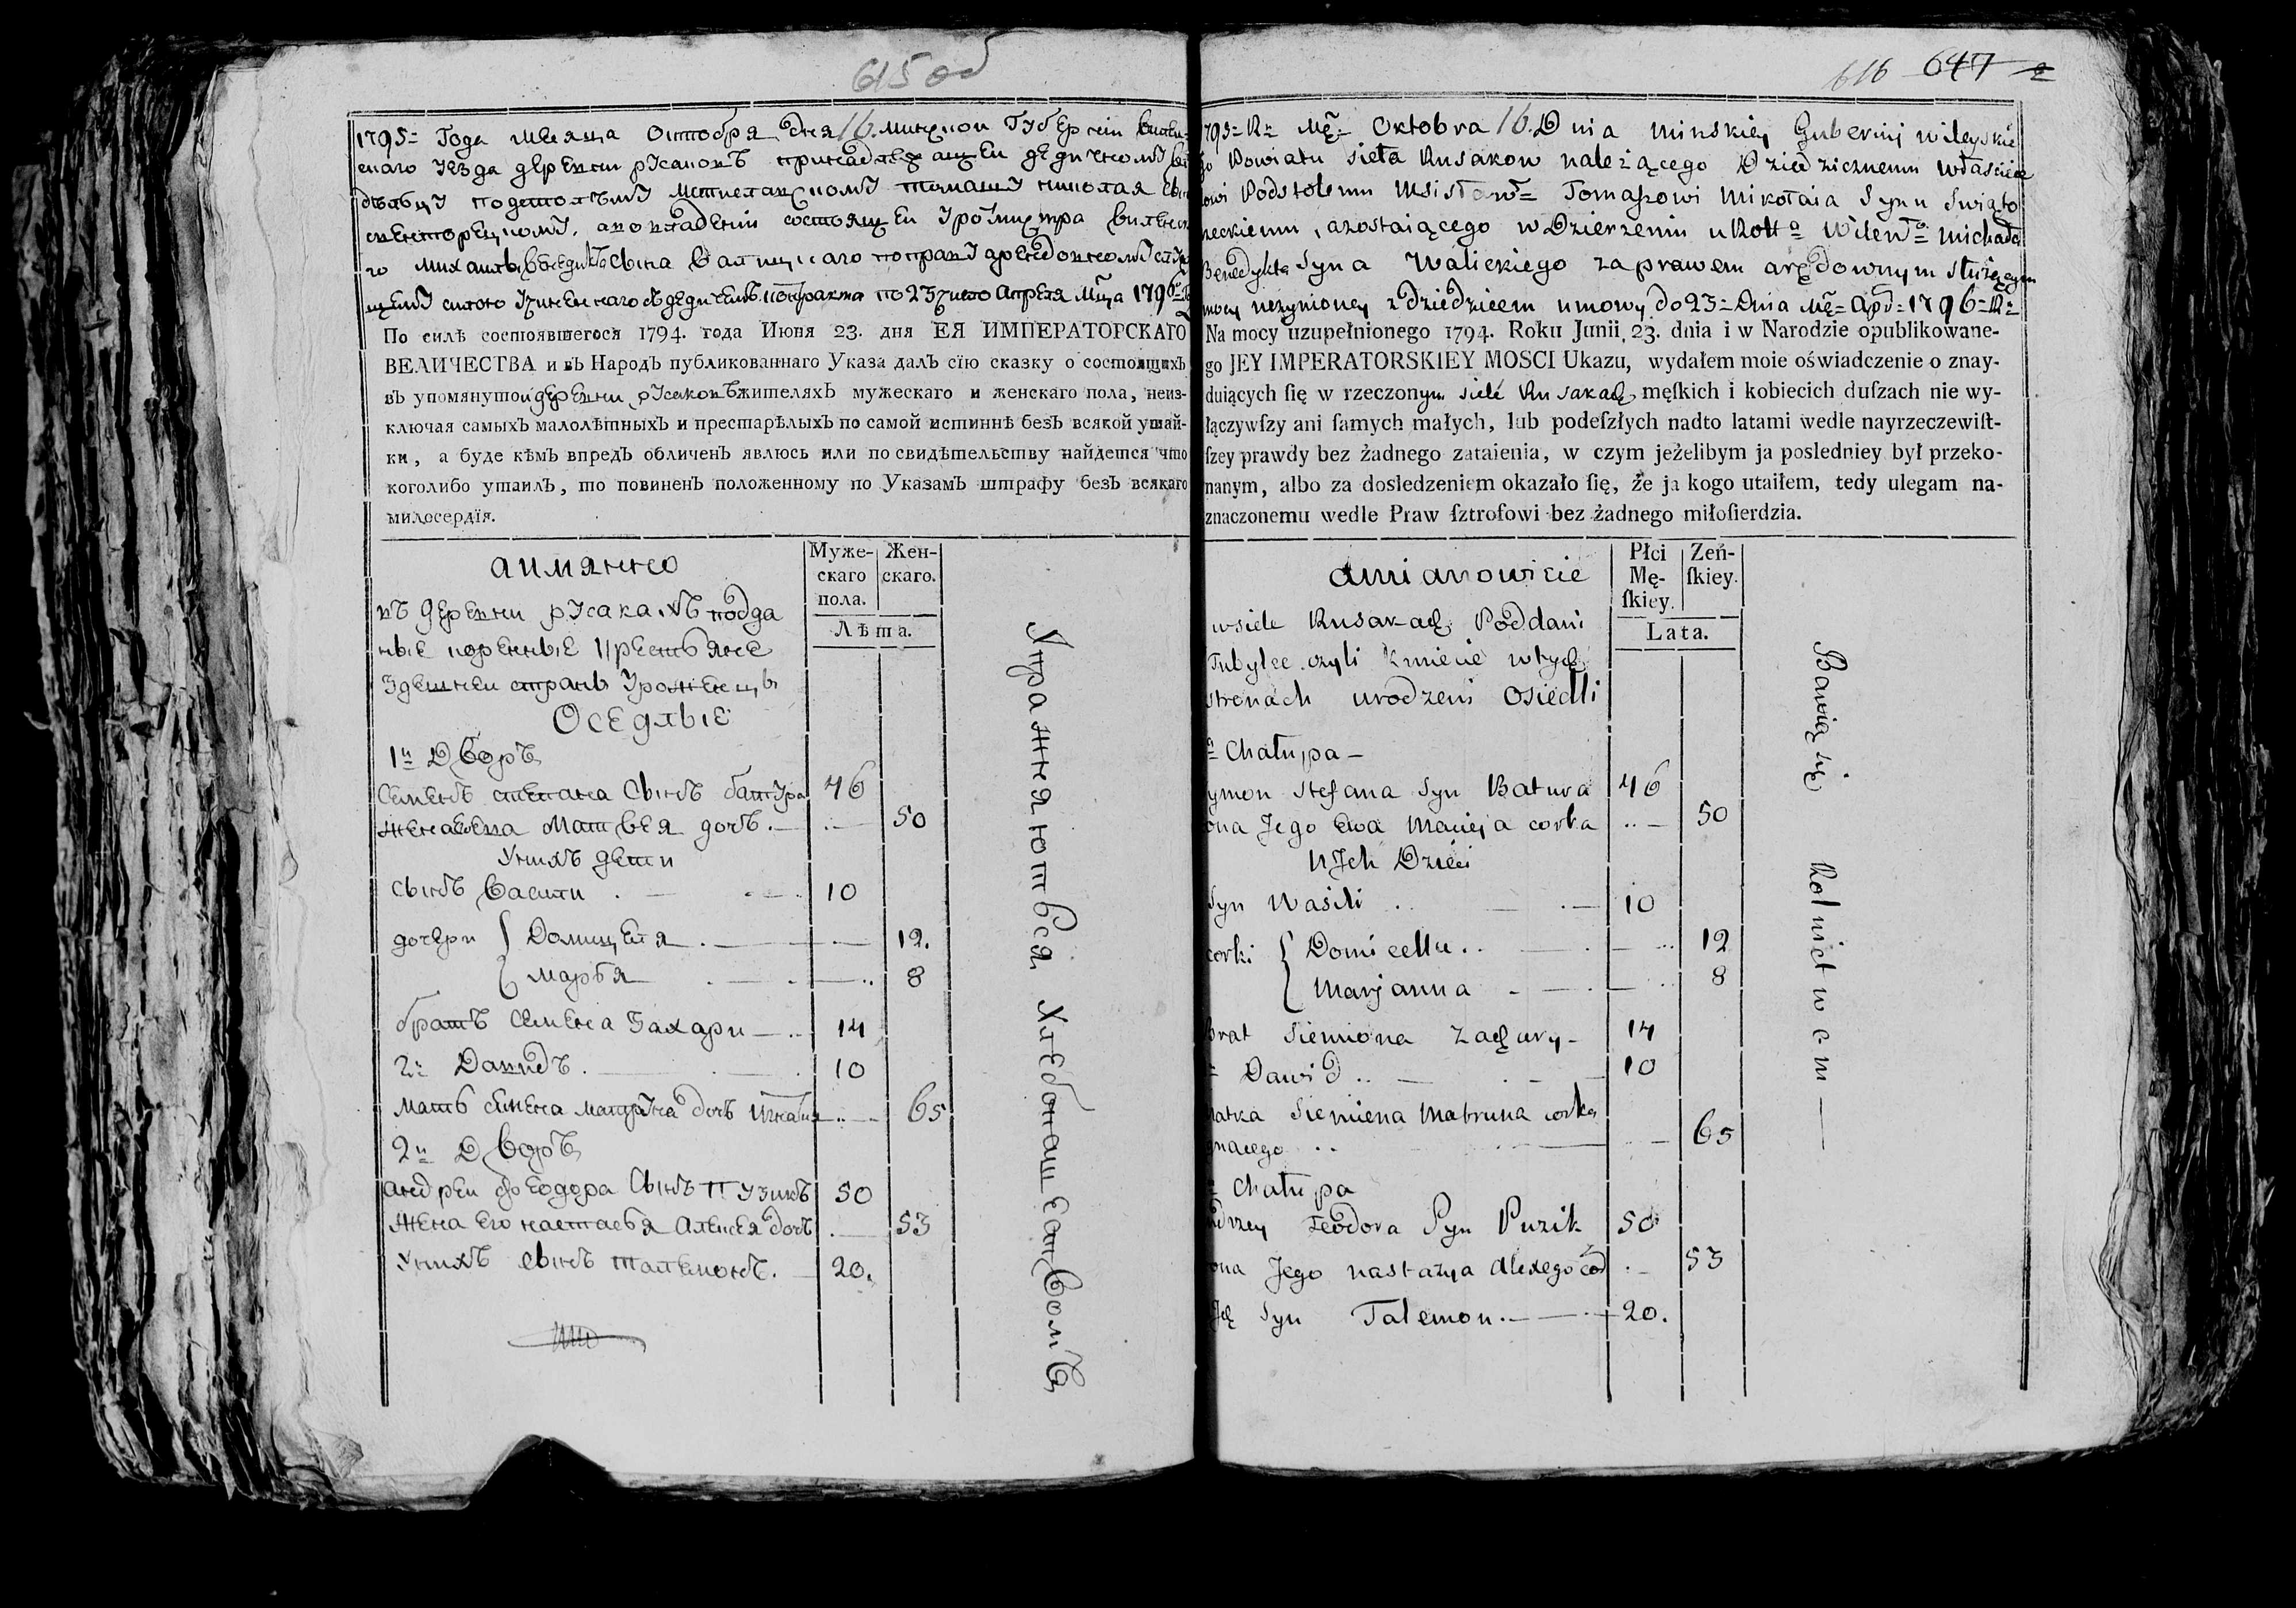 615 об
1795 = Года месяца Октобря дня 16. минской Губерніи вилей-
скаго уезда деревни русаковъ принадлежащеи дедичному вла
дѣльцу подстолѣму Мстиславскому томашу николая сына
свенторецкому, а во владеніи состоящеи у ротмистра виленска
го михаила бенедиктъ сына валицкаго по праву арендовному служа
щему силою учиненнаго съ дедичемъ контракта по 23 число Апреля мца 1796 = го
По силѣ состоявшегося 1794. года Июня 23. дня ЕЯ ИМПЕРАТОРСКАГО
ВЕЛИЧЕСТВА и въ Народъ публикованнаго Указа далъ сїю сказку о состоящихъ
въ упомянутой деревни русаковъ жителяхъ мужескаго и женскаго пола, неиз-
ключая самыхъ малолѣтныхъ и престарѣлыхъ по самой истиннѣ безъ всякой утай-
ки, а буде кѣмъ впредъ обличенъ явлюсь или по свидѣтельству найдется что
коголибо утаилъ, то повиненъ положенному по Указамъ штрафу безъ всякаго
милосердїя.
аимянно
Муже-
скаго
пола.
Жен-
скаго.
Лѣта.
въ деревни русакахъ подда
ные коренные крестьяне
здешнеи страны уроженцы
Оседлые
1й Дворъ
Семенъ степана Сынъ батура 46
жена евва Матвея дочь. 50
Унихъ дети
сынъ Васили 10
дочери { Домицеля 12.
марья 8
братъ семена Захари 14
2: Давидъ 10
мать семена матруна дочь игнатия 65
2й Дворъ
андреи феодора Сынъ Пузикъ 50
жена его настасья Алексея дочь 53
Унихъ сынъ талемонъ. 20.
Упражняються хлебопашеавомъ
616 647 2
1795 = R = Mę = Oktobra 16. Dnia minskiey Gubernij wileyskie
go Powiatu sieła Rusakow należącego Dziedzicznemu właścicie
lowi Podstolemu Msisław = Tomaszowi Mikołaia Synu Swięto
rzeckiemu, azostaiącego w Dzierżeniu u Rott a Wilen a michała
Benedykta Syna Walickiego za prawem arędownym służącym
mocą uczynioney z dziedzicem umowy do 23 = Dnia Mę = Apr = 1796 = R =
Na mocy uzupełnionego 1794. Roku Junii 23. dnia i w Narodzie opublikowane-
go JEY IMPERATORSKIEY MOSCI Ukazu, wydałem moie oświadczenie o znay-
duiących ſię w rzeczonym siele Rusakach męſkich i kobiecich duſzach nie wy-
łączywſzy ani ſamych małych, lub podeſzłych nadto latami wedle nayrzeczewiſt-
ſzey prawdy bez żadnego zataienia, w czym jeżelibym ja posledniey był przeko-
nanym, albo za dosledzeniem okazało ſię, że ja kogo utaiłem, tedy ulegam na-
znaczonemu wedle Praw ſztrofowi bez żadnego miłoſierdzia.
amianowicie
Płci
Mę-
ſkiey.
Zeń-
ſkiey.
Lata.
wsiele Rusakach Poddani
Tubylce czyli kmiecie wtych
stronach urodzeni Osiedli
a Chałupa –
ymon Stefana Syn Batura 46
ona Jego Ewa Macieja corka 50
U Ich Dzieci
Syn Wasili 10
corki { Domicella 12
Marjanna 8
Brat Siemiona Zachary – 14
Dawid 10
Matka Siemiena Matruna corka
gnacego 65
Chałupa
ndrzey Feodora Syn Puzik 50
ona Jego nastazya Alexego cor 53
Ich Syn Talemon. 20.
Bawią się Rolnictwem